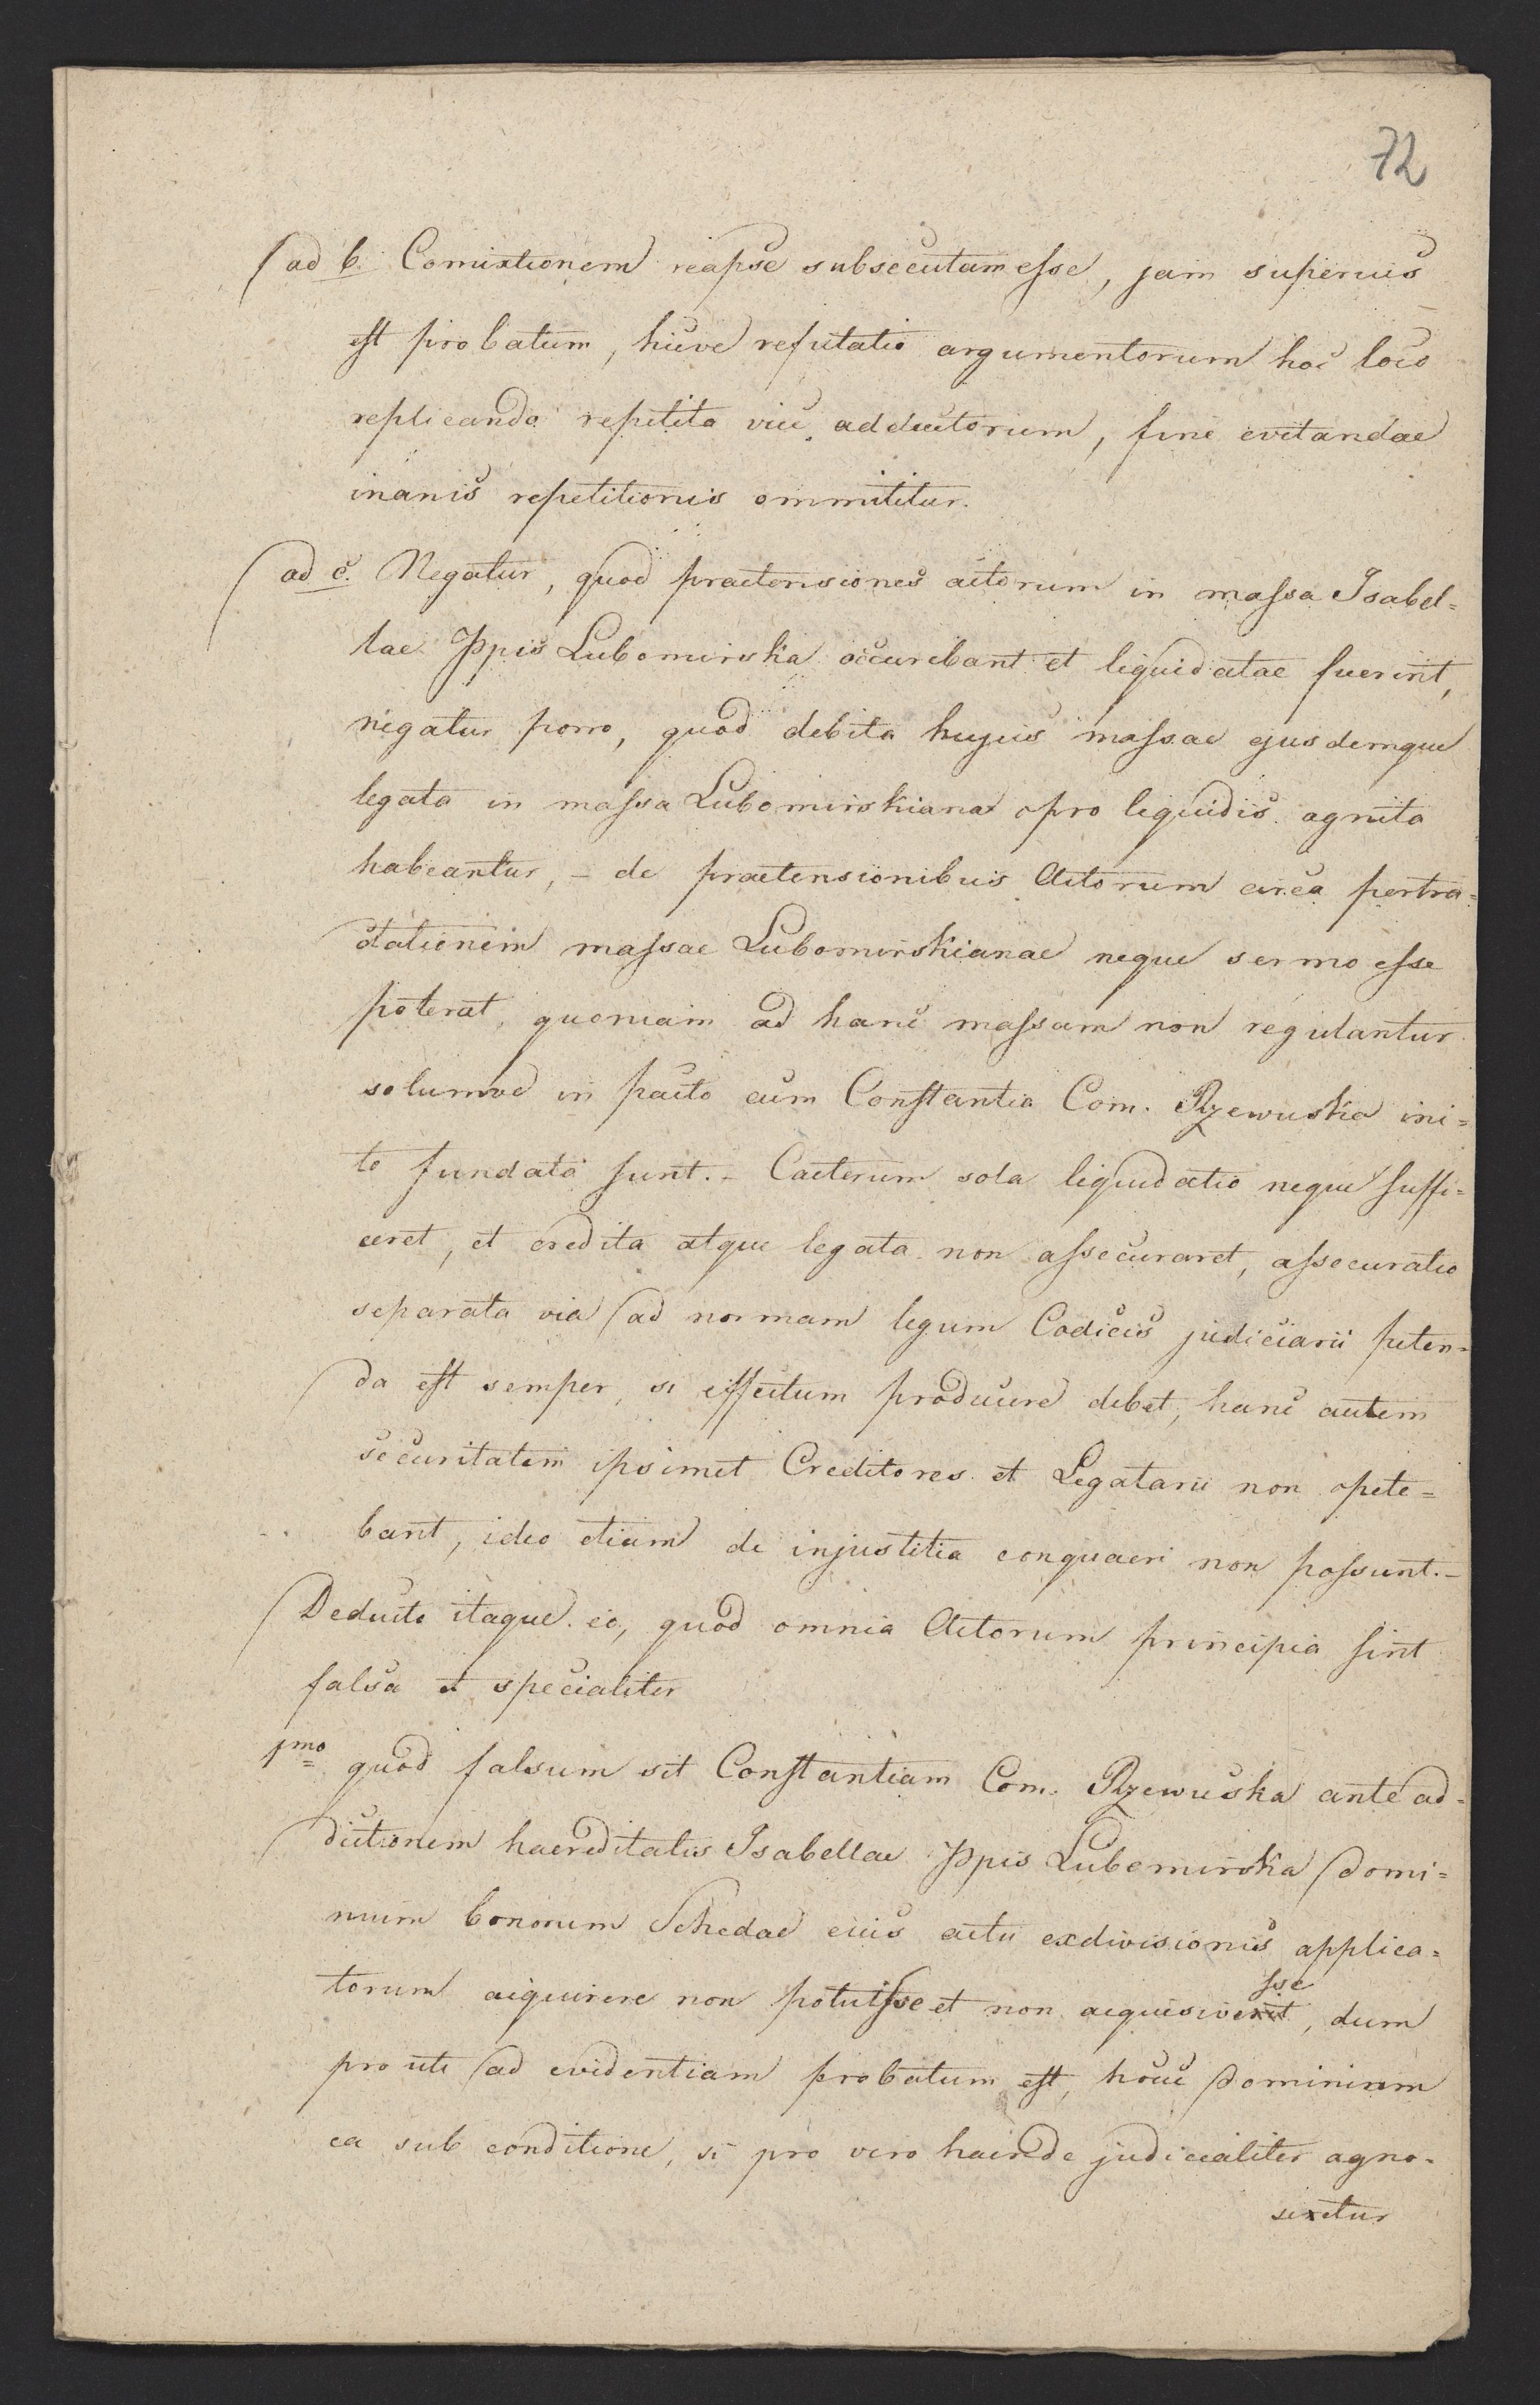 72
ad b. Comixtionem reapse subsecutam esse, jam superius
est probatum, hincve refutatio argumentorum hoc loco
replicando repetita vice adductorum, fine evitandae
inanis repetitionis ommititur.
ad c. Negatur, quod praetensiones actorum in massa Isabel=
lae Ppis Lubomirska occurebant et liquidatae fuerint,
negatur porro, quod debita hujus massae ejusdemque
legata in massa Lubomirskiana pro liquidis agnita
habeantur, – de praetensionibus Actorum circa pertra=
ctationem massae Lubomirskianae neque sermo esse
poterat, quoniam ad hanc massam non regulantur
solumve in pacto cum Constantia Com. Rzewuska ini=
to fundata sunt. – Caeterum sola liquidatio neque suffi=
ceret, et credita atque legata non assecuraret, assecuratio
separata via ad normam legum Codicis judiciarii peten=
da est semper, si effectum producere debet, hanc autem
securitatem ipsimet Creditores et Legatarii non pete=
bant, ideo etiam de injustitia conquaeri non possunt. –
Deducto itaque eo, quod omnia Actorum principia sint
falsa et specialiter
1mo quod falsum sit Constantiam Com. Rzewuska ante ad=
dictionem haereditatis Isabellae Ppis Lubomirska domi=
nium bonorum Schedae eius actu exdivisionis applica=
torum acquirere non potuisse et non acquisivisse, dum
prouti ad evidentiam probatum est, hocce Dominium
ea sub conditione, si pro vero haerede judicialiter agno=
scetur